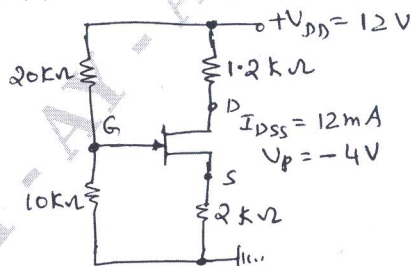 +V_DD = 12V
20KΩ
1.2KΩ
D
G
I_DSS = 12mA
V_P = -4V
S
10KΩ
2KΩ